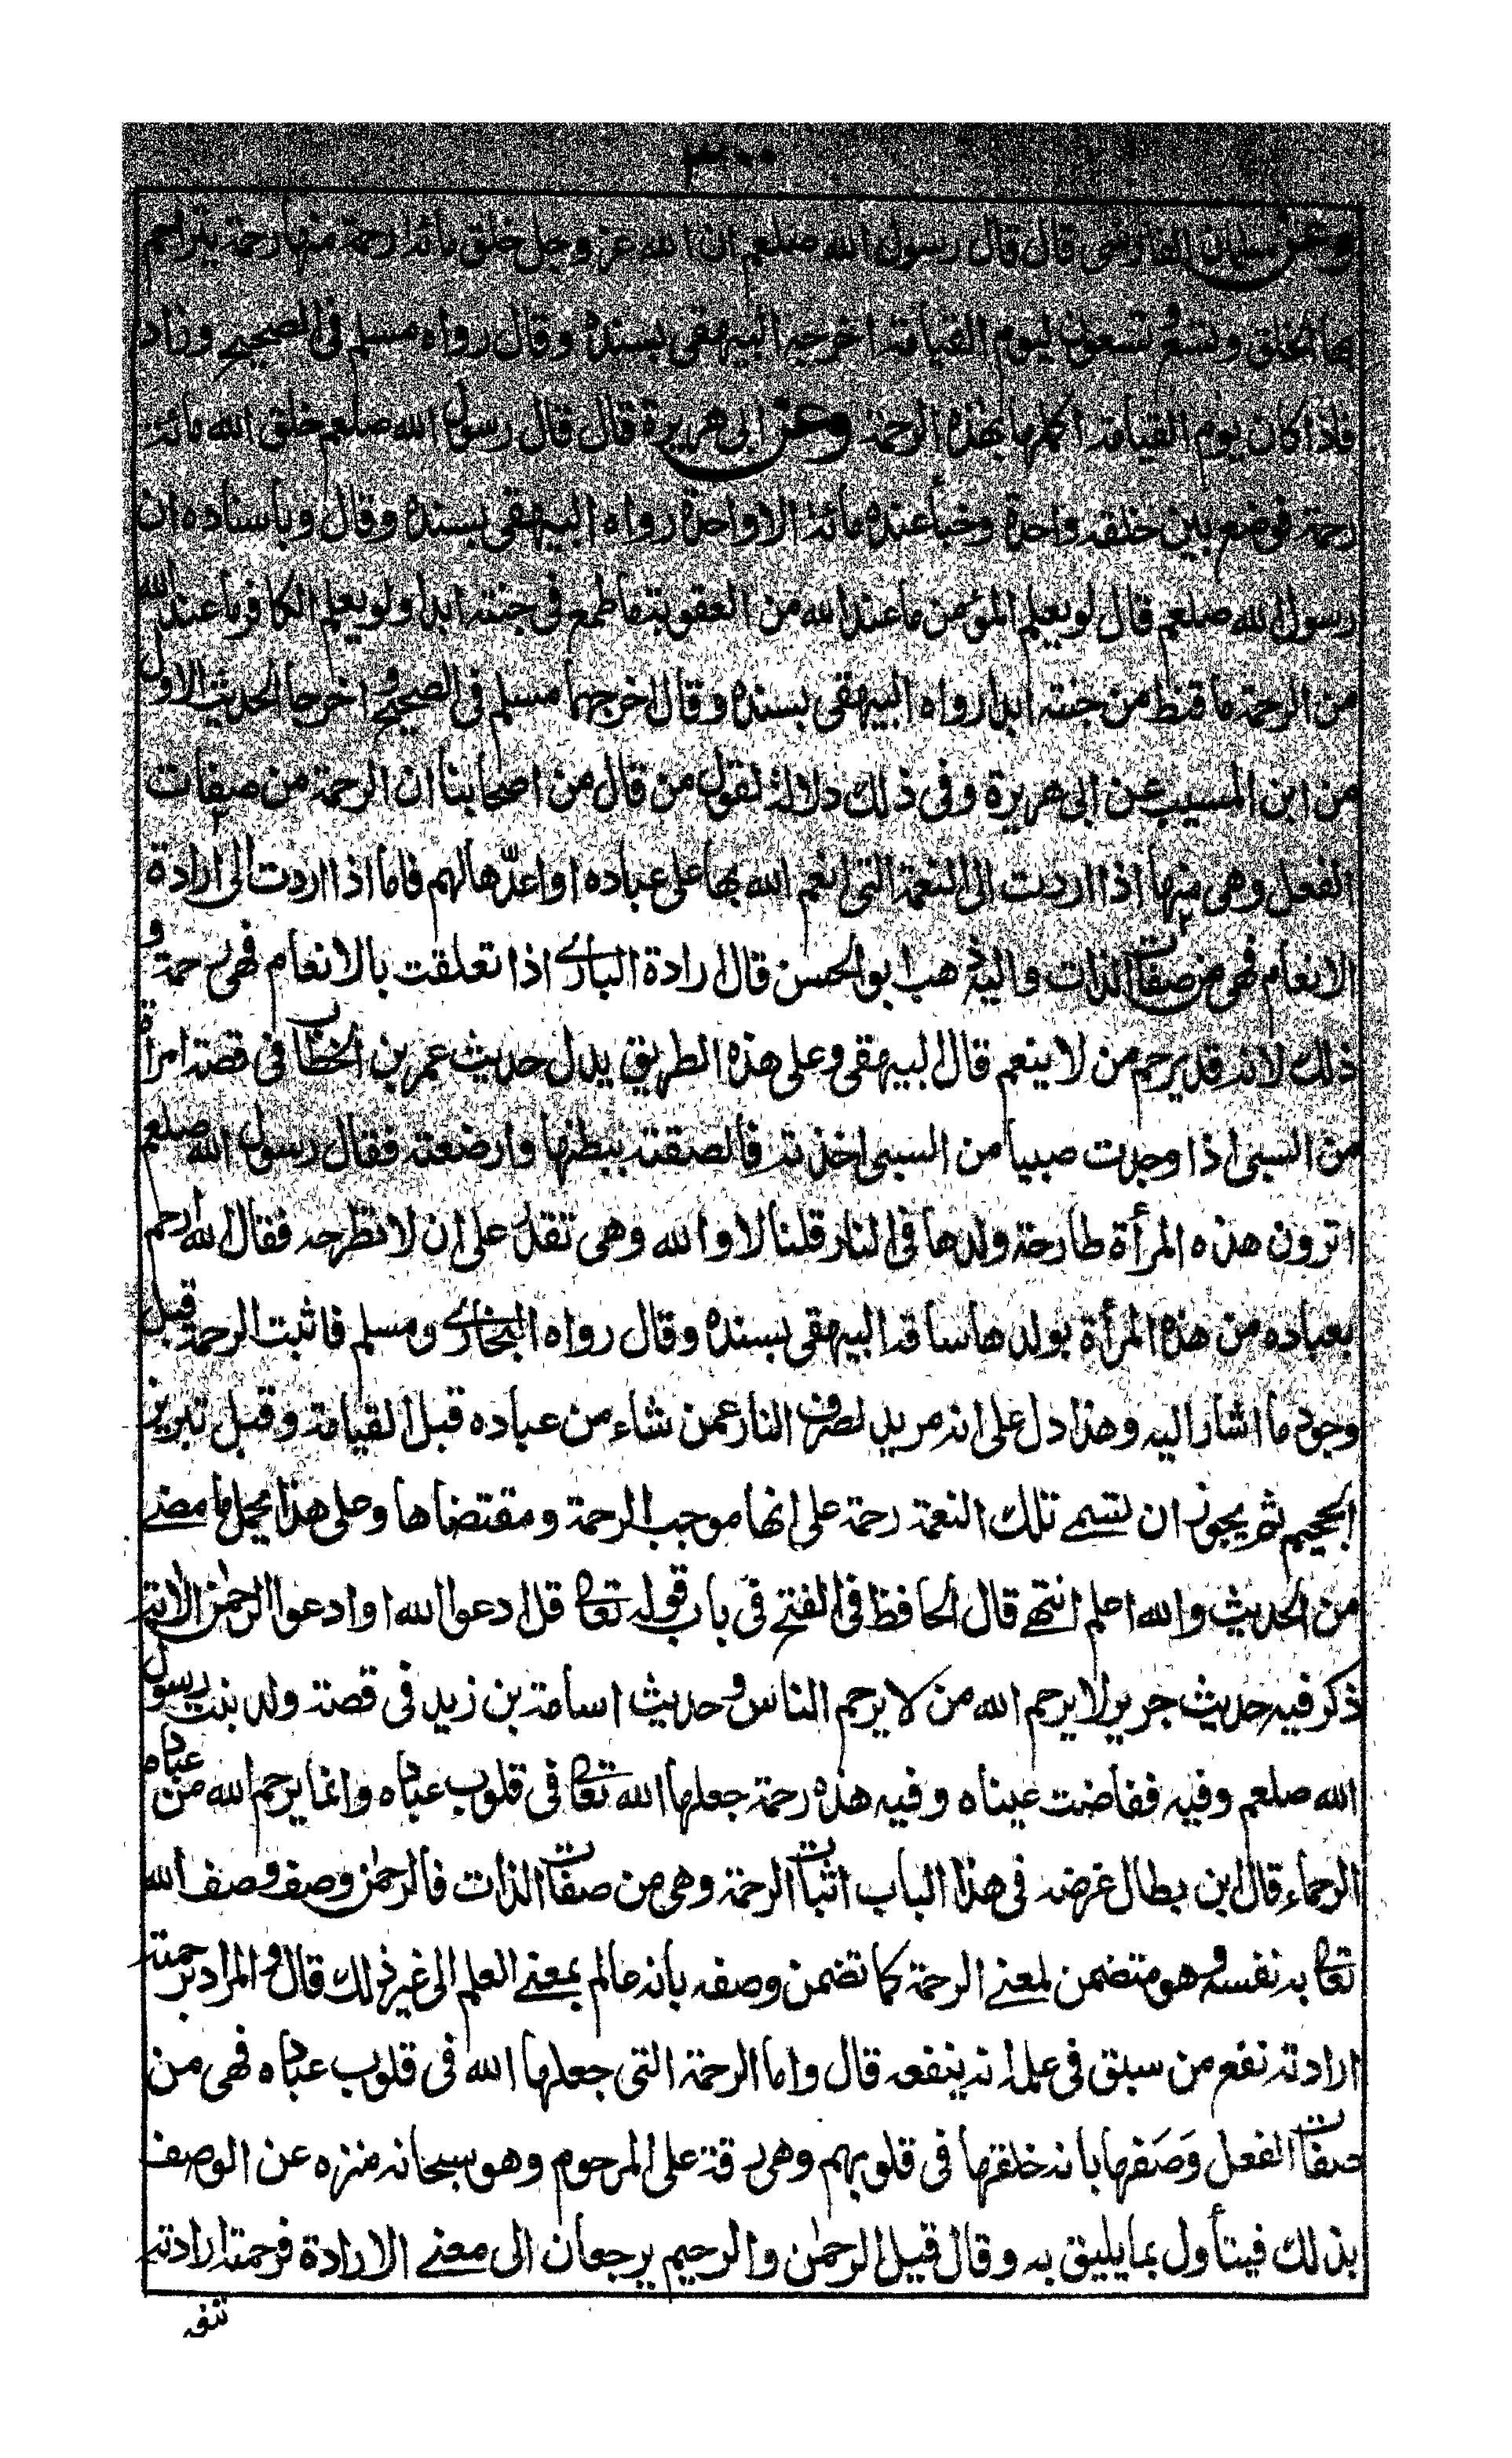 ٣٠٠
وعن سلمان الفارسى قال قال رسول الله صلعم ان الله عز وجل خلق مائة رحمة منها رحمة يتراحم
بها الخلق وتسع وتسعون ليوم القيامة اخرجه البيهقى بسنده وقال رواه مسلم فى الصحيح وزاد
فاذا كان يوم القيامة اكملها بهذه الرحمة وعن ابى هريرة قال قال رسول الله صلعم خلق الله مائة
رحمة فوضع بين خلقه واحدة وخبأ عنده مائة الا واحدة رواه البيهقى بسنده وقال وباسناده ان
رسول الله صلعم قال لو يعلم المؤمن ما عند الله من العقوبة ما طمع فى جنته ابدا ولو يعلم الكافر ما عند الله
من الرحمة ما قنط من جنته ابدا رواه البيهقى بسنده وقال اخرجهما مسلم فى الصحيح واخرجا الحديث الاول
من ابن المسيب عن ابى هريرة وفى ذلك دلالة لقول من قال من اصحابنا ان الرحمة من صفات
الفعل وهى منها اذا اردت الى النعمة التى انعم الله بها على عباده او اعدّها لهم فاما اذا اردت الى ارادة
الانعام فهى من صفات الذات واليه ذهب ابو الحسن قال ارادة البارى اذا تعلقت بالانعام فهى رحمة و
ذلك لانه قد يرحم من لا ينعم قال البيهقى وعلى هذه الطريق يدل حديث عمر بن الخطاب فى قصة امرأة
من السبى اذا وجدت صبيا من السبى اخذته فالصقته ببطنها وارضعته فقال رسول الله صلعم
اترون هذه المرأة طارحة ولدها فى النار قلنا لا والله وهى تقدر على ان لا تطرحه فقال الله ارحم
بعباده من هذه المرأة بولدها ساقه البيهقى بسنده وقال رواه البخارى ومسلم فاثبت الرحمة قبل
وجود ما اشار اليه وهذا دل على انه مريد لصرف النار عمن شاء من عباده قبل القيامة وقبل تبريز
الجحيم ثم يجوز ان تسمى تلك النعمة رحمة على انها موجب الرحمة ومقتضاها وعلى هذا يحمل ما مضى
من الحديث والله اعلم انتهى قال الحافظ فى الفتح فى باب قوله تعا قل ادعوا الله او ادعوا الرحمٰن الاية
ذكر فيه حديث جرير لا يرحم الله من لا يرحم الناس وحديث اسامة بن زيد فى قصة ولد بنت رسول
الله صلعم وفيه ففاضت عيناه وفيه هذه رحمة جعلها الله تعا فى قلوب عباده وانما يرحم الله من عباده
الرحماء قال ابن بطال غرضه فى هذا الباب اثبات الرحمة وهى من صفات الذات فالرحمٰن وصف وصف الله
تعا به نفسه وهو متضمن لمعنى الرحمة كما تضمن وصفه بانه عالم بمعنى العلم الى غير ذلك قال والمراد برحمته
ارادته نفع من سبق فى علمه انه ينفعه قال واما الرحمة التى جعلها الله فى قلوب عباده فهى من
صفات الفعل وَصَفها بانه خلقها فى قلوبهم وهى رقة على المرحوم وهو سبحانه منزه عن الوصف
بذلك فيتأول بما يليق به وقال قيل الرحمٰن والرحيم يرجعان الى معنى الارادة فرحمته ارادته